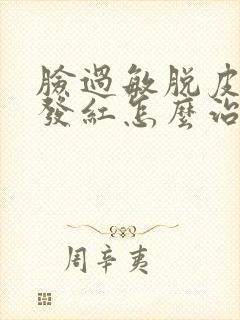 臉過敏脱皮
發紅怎麼治
周辛夷